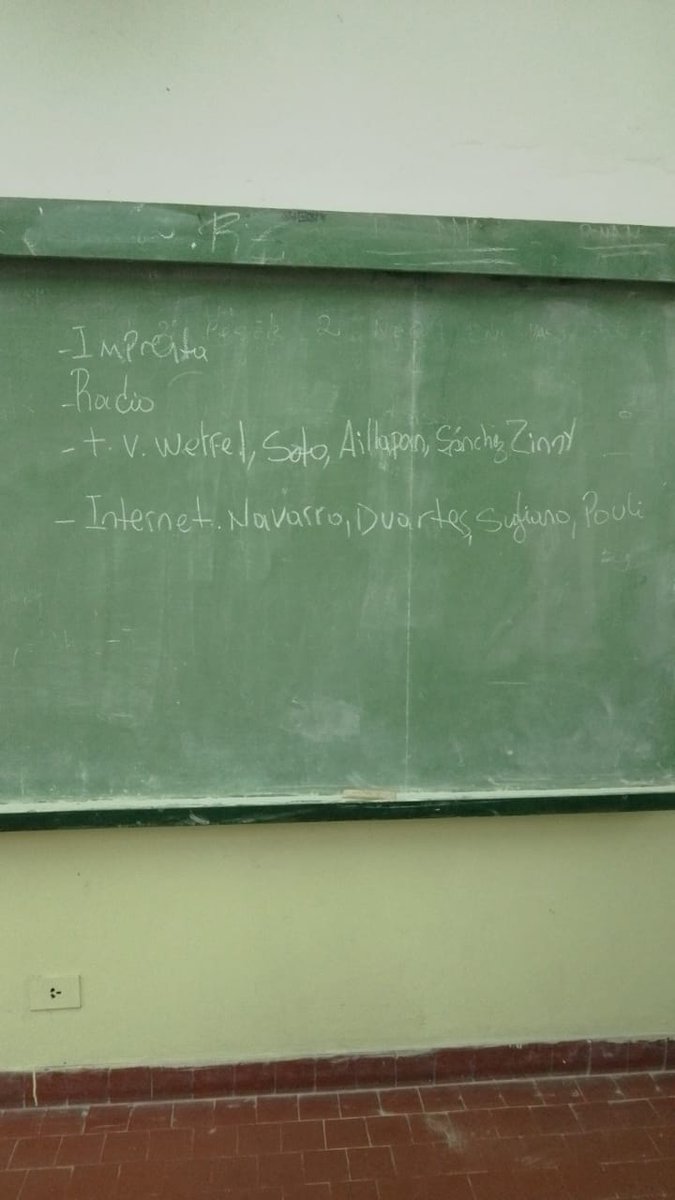 - Imprenta
- Radio
- t.v. Wetfel, Soto, Aillapan, Sánchez Zinny
- Internet. Navarro, Duartes, Sufiano, Pouli